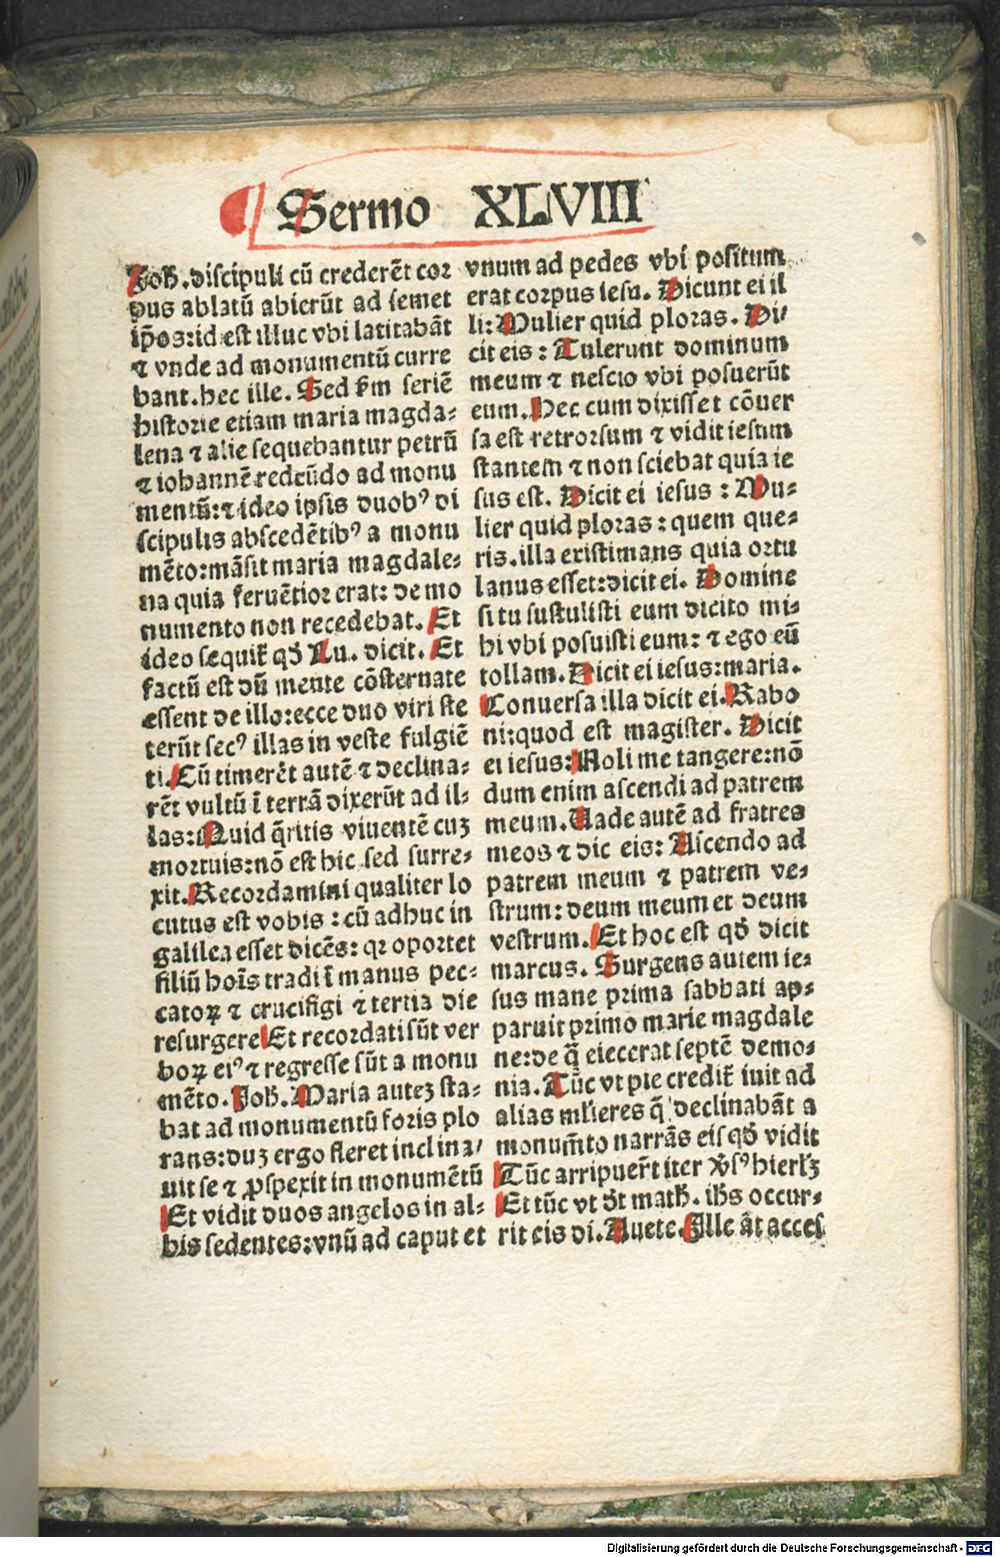 Sermo XLVIII
Joh̄. discipuli cū crederēt cor
pus ablatū abierūt ad semet
ip̄os: id est illuc vbi latitabāt
⁊ vnde ad monumentū curre
bant. hec ille. Sed ẜm seriē
historie etiam maria magda-
lena ⁊ alie sequebantur petrū
⁊ iohannē redeūdo ad monu
mentū: ⁊ ideo ipsis duobꝰ di
scipulis abscedētibꝰ a monu
mēto: māsit maria magdale-
na quia feruētior erat: de mo
numento non recedebat. Et
ideo sequit̄ qđ Lu. dicit. Et
factū est dū mente cōsternate
essent de illo: ecce duo viri ste
terūt secꝰ illas in veste fulgiē
ti. Cū timerēt autē ⁊ declina-
rēt vultū ī terrā dixerūt ad il-
las: Quid q̄ritis viuentē cuꝫ
mortuis: nō est hic sed surre-
xit. Recordamini qualiter lo
cutus est vobis: cū adhuc in
galilea esset dicēs: qꝛ oportet
filiū hoīs tradi ī manus pec-
catoꝝ ⁊ crucifigi ⁊ tertia die
resurgere Et recordati sūt ver
boꝝ eiꝰ ⁊ regresse sūt a monu
mēto. Joh̄. Maria auteꝫ sta-
bat ad monumentū foris plo
rans: duꝫ ergo fleret inclina/
uit se ⁊ ꝓspexit in monumētū
Et vidit duos angelos in al-
bis sedentes: vnū ad caput et
vnum ad pedes vbi positum
erat corpus iesu. Dicunt ei il
li: Mulier quid ploras. Di/
cit eis: Tulerunt dominum
meum ⁊ nescio vbi posuerūt
eum. Hec cum dixisset cōuer
sa est retrorsum ⁊ vidit iesum
stantem ⁊ non sciebat quia ie
sus est. Dicit ei iesus: Mu-
lier quid ploras: quem que-
ris. illa existimans quia ortu
lanus esset: dicit ei. Domine
si tu sustulisti eum dicito mi-
hi vbi posuisti eum: ⁊ ego eū
tollam. Dicit ei iesus: maria.
Conuersa illa dicit ei. Rabo
ni: quod est magister. Dicit
ei iesus: Noli me tangere: nō
dum enim ascendi ad patrem
meum. Uade autē ad fratres
meos ⁊ dic eis: Ascendo ad
patrem meum ⁊ patrem ve-
strum: deum meum et deum
vestrum. Et hoc est qđ dicit
marcus. Surgens autem ie-
sus mane prima sabbati ap-
paruit primo marie magdale
ne: de q̄ eiecerat septē demo-
nia. Tūc vt pie credit̄ iuit ad
alias ml̄ieres q̄ declinabāt a
monum̄to narrās eis qđ vidit
Tūc arripuer̄t iter v̓sꝰ hierl̄ꝫ
Et tūc vt dr̄t math̄. ih̄s occur-
rit eis di. Auete. Ille āt acces
Digitalisierung gefördert durch die Deutsche Forschungsgemeinschaft - DFG